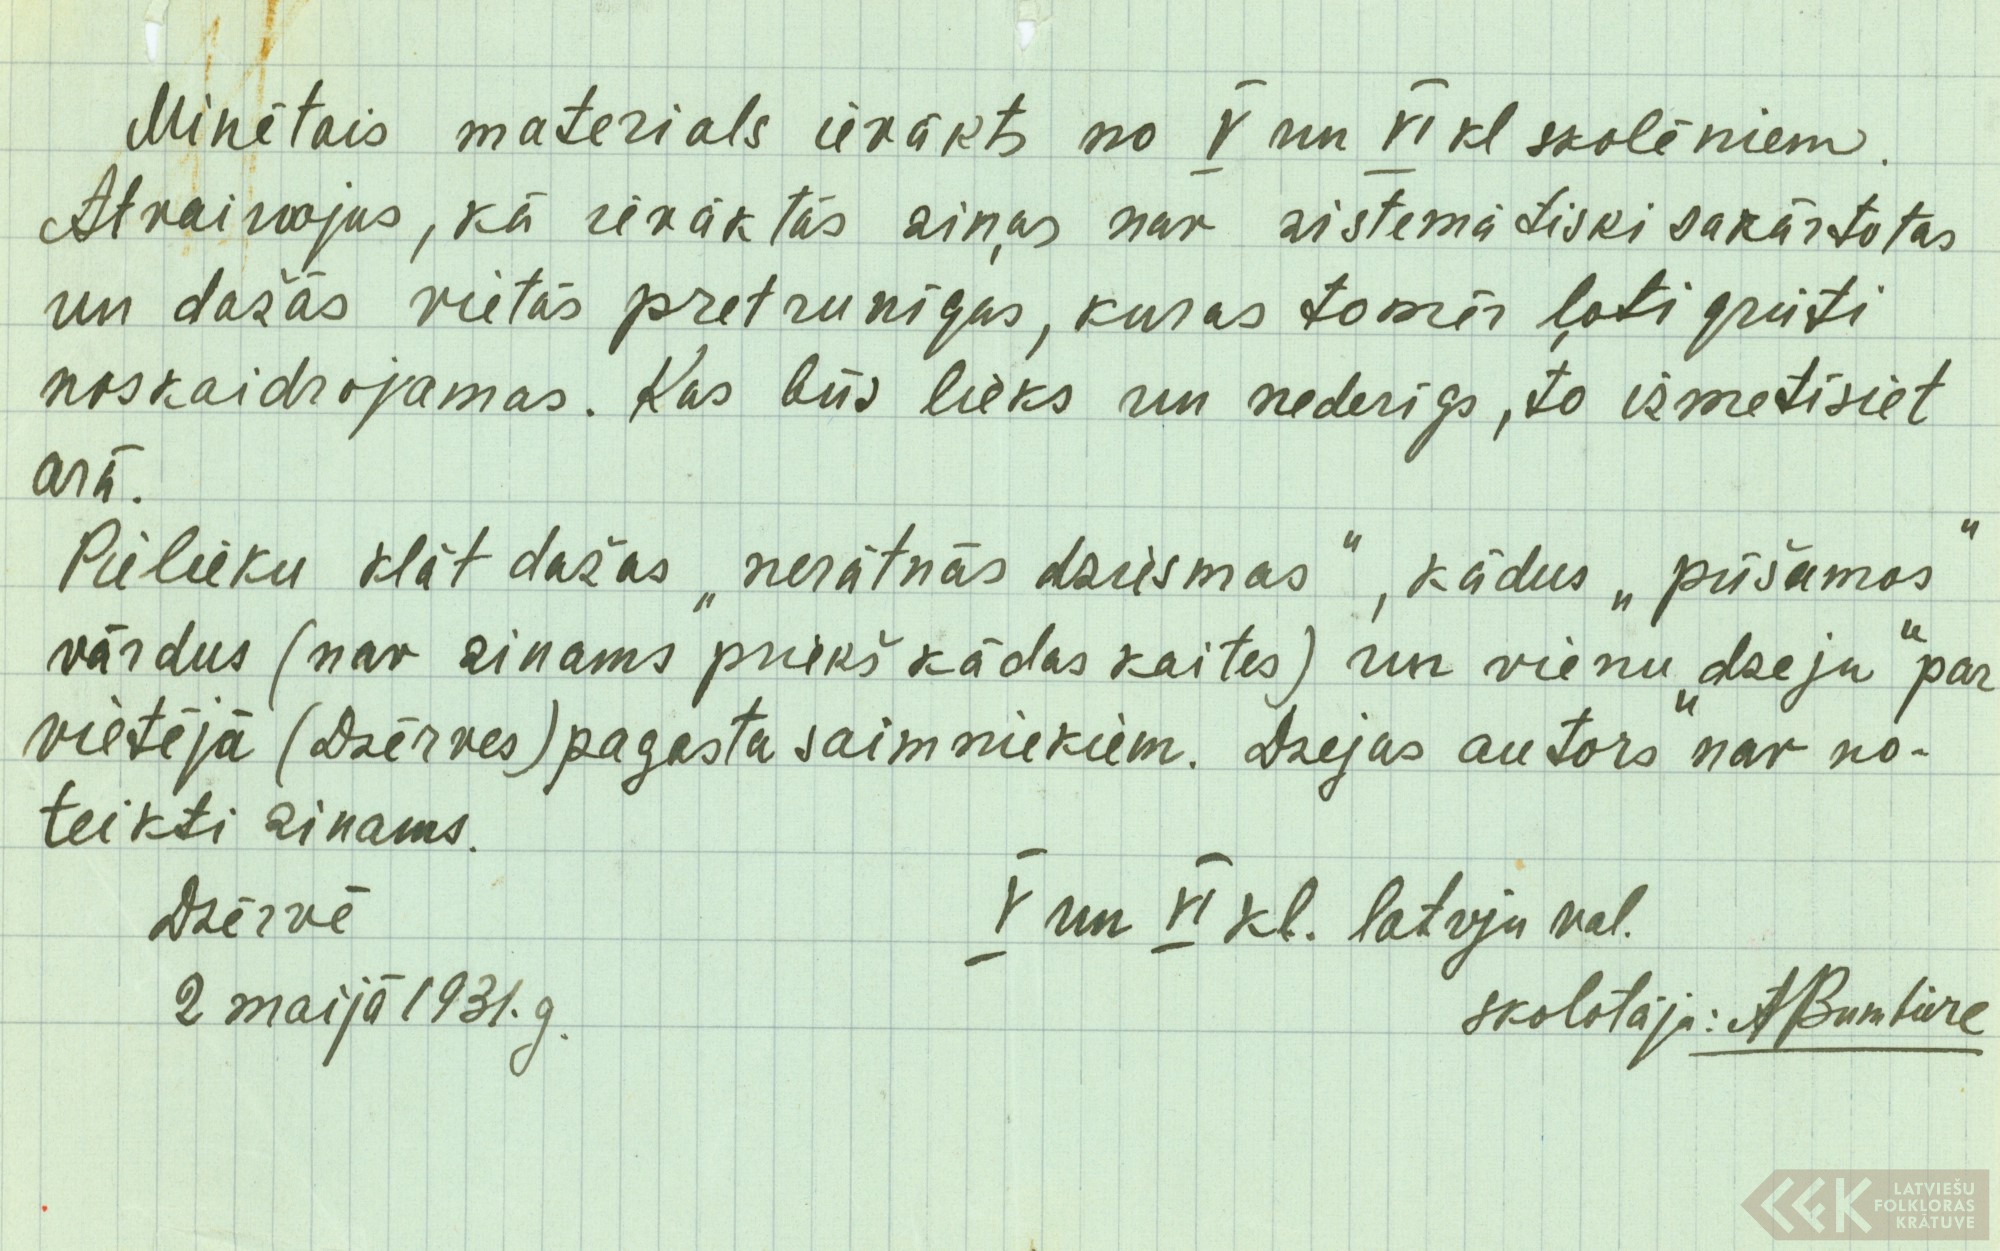 Minētais materials ievākts no V un VI kl skolēniem.
Atvainojus, kā ievāktās ziņas nav sistemātiski sakārtotas
un dažās vietās pretrunīgas, kuras tomēr ļoti grūti
noskaidrojamas. Kas būs lieks un nederīgs, to izmetīsiet
arā.
Pielieku klāt dažas „nerātnās dziesmas“, kādus „pūšamos“
vārdus (nav zinams priekš kādas kaites) un vienu „dzeju“ par
vietējā (Dzērves) pagasta saimniekiem. Dzejas „autors“ nav no-
teikti zinams.
Dzērvē
V un VI kl. latvju val.
2 maijā 1931. g.
skolotāja: A Bumbiere
LATVIEŠU
FOLKLORAS
KRĀTUVE